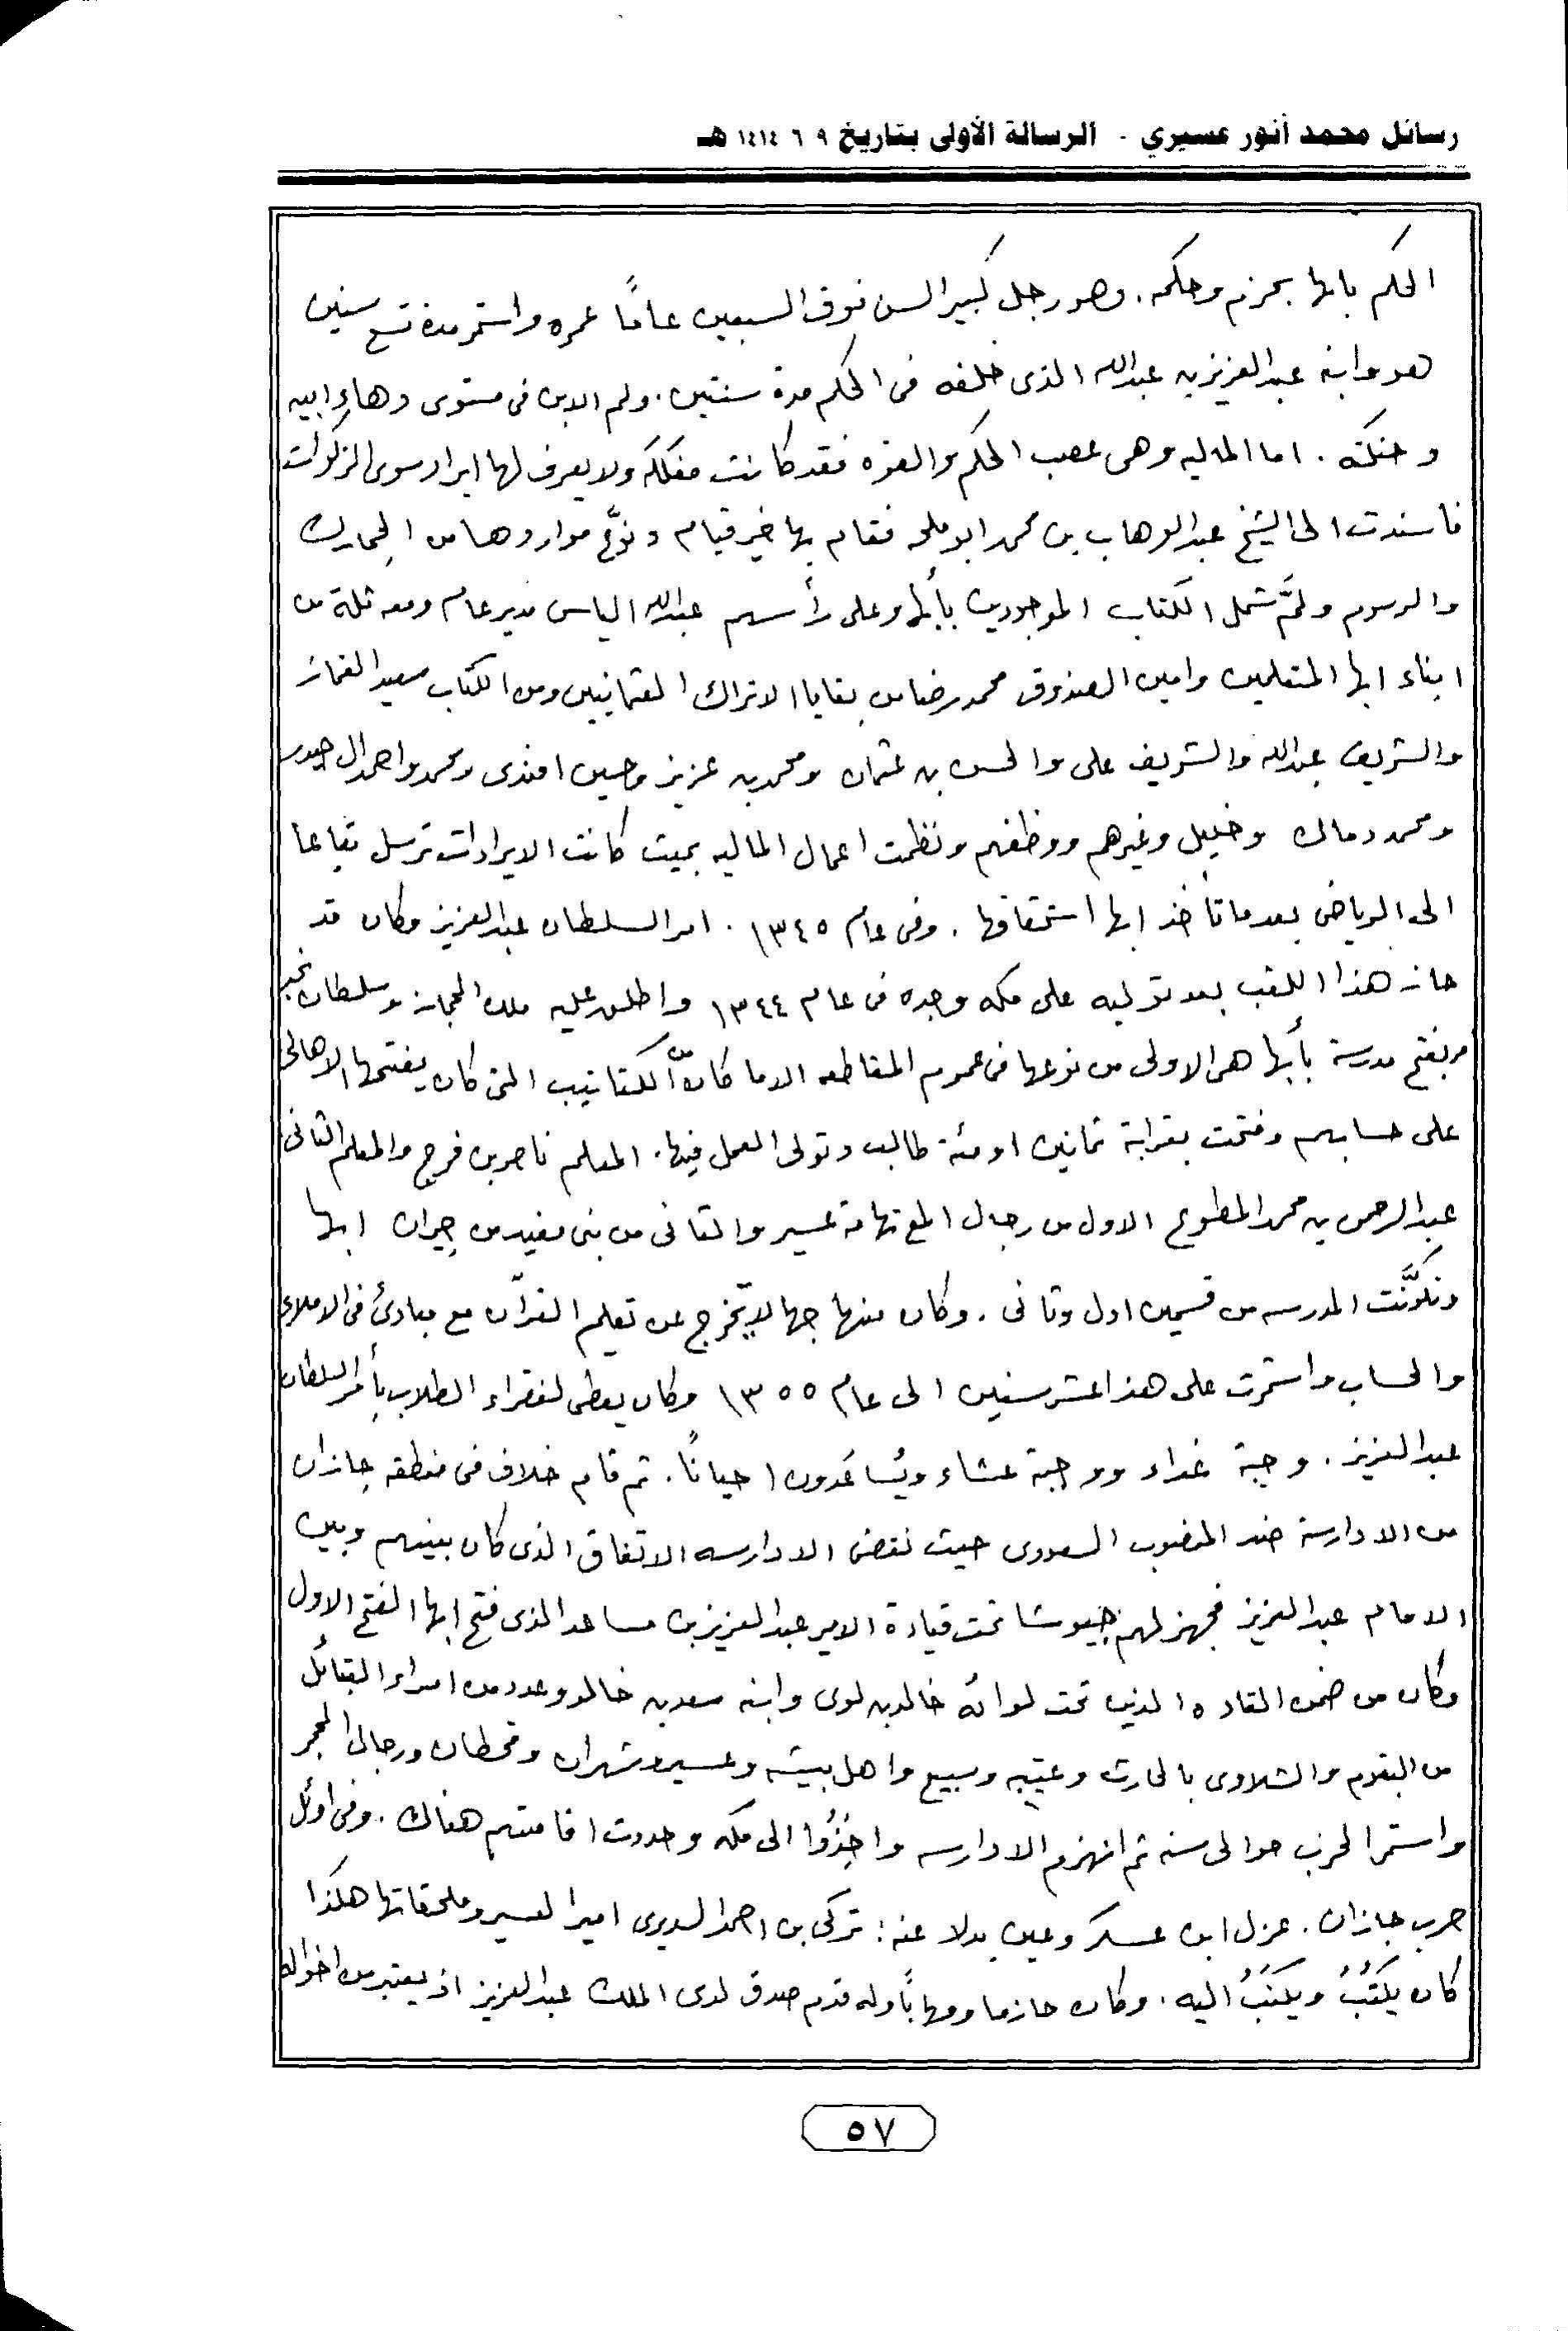 رسائل محمد أنور عسيري - الرسالة الأولى بتاريخ ٩ ٦ ١٤١٤ هـ
الحكم بابها بحزم وحكمه. وهو رجل كبير السن فوق السبعين عاماً عمره واستمر مدة تسع سنين
هو وابنه عبدالعزيز بن عبدالله الذى خلفه فى الحكم مدة سنتين. ولم الابن فى مستوى دهاء ابيه
وحنكته. اما الماليه وهى عصب الحكم والقوه فقد كانت مفككه ولا يعرف لها ايراد سوى الزكوات
فاسندت الى الشيخ عبدالوهاب بن محمد ابو ملحه فقام بها خير قيام ونوَّع مواردها من الجمارك
والرسوم ولمَّ شمل الكتاب الموجودين بأبها وعلى رأسهم عبدالله الياس مدير عام ومعه ثلة من
ابناء ابها المتعلمين وامين الصندوق محمد رضا من بقايا الاتراك العثمانيين ومن الكتاب سعيد الغماز
والشريف عبدالله والشريف على والحسن بن عثمان ومحمد بن عزيز وحسين افندى ومحمد واحمد ال حيدر
ومحمد دمان وخليل وغيرهم ووظفهم ونظمت اعمال الماليه بحيث كانت الايرادات ترسل تباعا
الى الرياض بعد ما تأخذ ابها استحقاقها. وفى عام ١٣٤٥. امر السلطان عبدالعزيز وكان قد
حاز هذا اللقب بعد توليه على مكه وجده فى عام ١٣٤٤ واطلق عليه ملك الحجاز وسلطان نجد
مر بفتح مدرسة بأبها هى الاولى من نوعها فى عموم المقاطعه الا ما كان الكتاتيب التى كان يفتحها الاهالى
على حسابهم وفتحت بقرابة ثمانين او مئة طالب وتولى العمل فيها. المعلم ناصر بن فرج والمعلم الثانى
عبدالرحمن بن محمد المطوع الاول من رجال المع تهامة عسير والثانى من بنى مفيد من جيران ابها
وتكوَّنت المدرسه من قسمين اول وثانى. وكان منهاجها لا يخرج عن تعليم القرآن مع مبادئ فى الاملاء
والحساب واستمرت على هذا عشر سنين الى عام ١٣٥٥ وكان يعطى لفقراء الطلاب بأمر السلطان
عبدالعزيز. وجبة غداء ووجبة عشاء ويُساعَدون احياناً. ثم قام خلاف فى منطقه جازان
من الادارسة ضد المنصوب السعودى حيث نقض الادارسه الاتفاق الذى كان بينهم وبين
الامام عبدالعزيز فجهز لهم جيوشا تحت قيادة الامير عبدالعزيز بن مساعد الذى فتح ابها الفتح الاول
وكان من ضمن القاده الذين تحت لوائه خالد بن لوى وابنه سعد بن خالد وعدد من امراء القبائل
من البقوم والشلاوى بالحارث وعتيبه وسبيع واهل بيشه وعسير وشهران وقحطان ورجال الحجر
واستمر الحرب حوالى سنه ثم انهزم الادارسه واخِذُوا الى مكه وحددت اقامتهم هناك. وفى اوئل
حرب جازان. عزل ابن عسكر وعين بدلا عنه: تركى بن احمد السديرى اميرا لعسير وملحقاتها هكذا
كان يَكتُبُ ويُكتَبُ اليه. وكان حازما ومهاباً وله قدم صدق لدى الملك عبدالعزيز اذ يعتبر من اخواله
٥٧